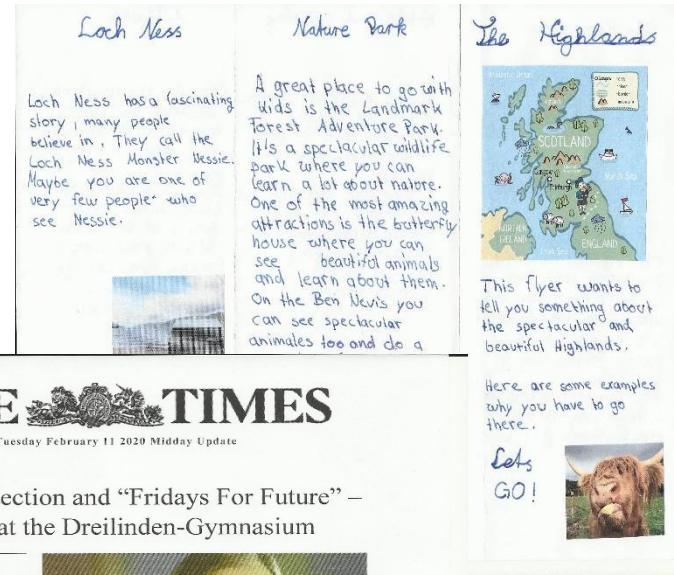 Loch Ness
Loch Ness has a fascinating
story, many people
believe in. They call the
Loch Ness Monster Nessie.
Maybe you are one of
very few people who
see Nessie.
Nature Park
A great place to go with
kids is the Landmark
Forest Adventure Park.
It's a spectacular wildlife
park where you can
learn a lot about nature.
One of the most amazing
attractions is the butterfly
house where you can
see beautiful animals
and learn about them.
On the Ben Nevis you
can see spectacular
animales too and do a
The Highlands
SCOTLAND
Edinburgh
North Sea
NORTHERN
IRELAND
ENGLAND
This flyer wants to
tell you something about
the spectacular and
beautiful Highlands.
Here are some examples
why you have to go
there.
Lets
GO!
E TIMES
Tuesday February 11 2020 Midday Update
ection and “Fridays For Future” –
at the Dreilinden-Gymnasium